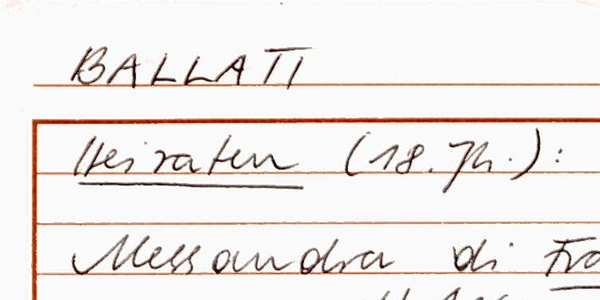 BALLATI
Heiraten (18. Jh.):
Alessandra di